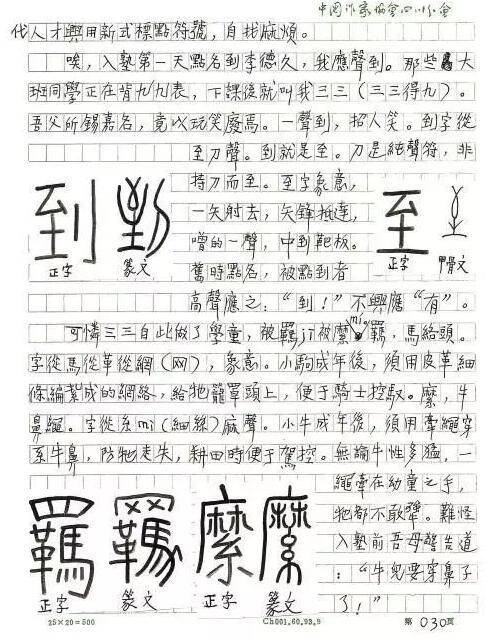 中国作家协会四川分会
代人才興用新式標點符號，自找麻煩。
唉，入塾第一天點名到李德久，我應聲到。那些大
班同學正在背九九表，下課後就叫我三三（三三得九）。
吾父所錫嘉名，竟以玩笑廢焉。一聲到，招人笑。到字從
至刀聲。到就是至。刀是純聲符，非
持刀而至。至字象意，
一矢射去，矢鋒抵達，
噌的一聲，中到靶板。
舊時點名，被點到者
高聲應之："到！"不興應"有"。
到
正字
篆文
至
正字
甲骨文
可憐三三自此做了學童，被羈ji被縻mi。羈，馬絡頭。
字從馬從革從網（网），象意。小駒成年後，須用皮革細
條編紮成的網絡，給牠籠罩頭上，便于騎士控馭。縻，牛
鼻繩。字從糸mi（細絲）麻聲。小牛成年後，須用牽繩穿
系牛鼻，防牠走失，耕田時便于駕控。無論牛性多猛，一
繩牽在幼童之手，
牠都不敢犟。難怪
入塾前吾母警告道
："牛兒要穿鼻子
了！"
羈
正字
篆文
縻
正字
篆文
25×20=500
Ch001.60.93.9
第 030 页